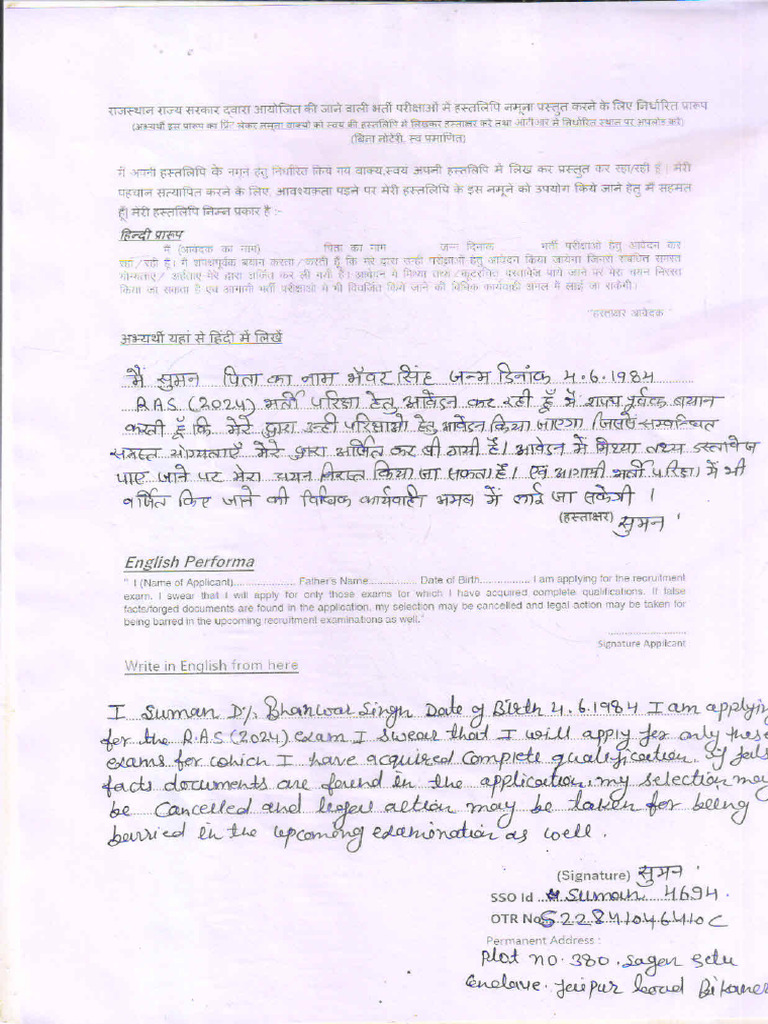 राजस्थान राज्य सरकार द्वारा आयोजित की जाने वाली भर्ती परीक्षाओं में हस्तलिपि नमूना प्रस्तुत करने के लिए निर्धारित प्रारूप
(अभ्यर्थी इस प्रारूप का प्रिंट लेकर नमूना वाक्यों को स्वयं की हस्तलिपि में लिखकर हस्ताक्षर करे तथा ओटीआर में निर्धारित स्थान पर अपलोड करे)
(बिना नोटेरी, स्व प्रमाणित)
मैं अपनी हस्तलिपि के नमूने हेतु निर्धारित किये गये वाक्य,स्वयं अपनी हस्तलिपि में लिख कर प्रस्तुत कर रहा/रही हूँ। मेरी
पहचान सत्यापित करने के लिए, आवश्यकता पड़ने पर मेरी हस्तलिपि के इस नमूने को उपयोग किये जाने हेतु मैं सहमत
हूँ। मेरी हस्तलिपि निम्न प्रकार है :-
हिन्दी प्रारूप
मैं (आवेदक का नाम) .................. पिता का नाम .................. जन्म दिनांक .................. भर्ती परीक्षाओं हेतु आवेदन कर
रहा/रही हूँ। मैं शपथपूर्वक बयान करता/करती हूँ कि मेरे द्वारा उन्हीं परीक्षाओं हेतु आवेदन किया जायेगा जिनसे संबंधित समस्त
योग्यताएं / अर्हताएं मेरे द्वारा अर्जित कर ली गयी हैं। आवेदन में मिथ्या तथ्य /कूटरचित दस्तावेज पाये जाने पर मेरा चयन निरस्त
किया जा सकता है एवं आगामी भर्ती परीक्षाओं में भी विवर्जित किये जाने की विधिक कार्यवाही अमल में लाई जा सकेगी।
"हस्ताक्षर आवेदक "
अभ्यर्थी यहां से हिंदी में लिखें
मैं सुमन पिता का नाम भँवर सिंह जन्म दिनांक 4.6.1984
RAS (2024) भर्ती परिक्षा हेतु आवेदन कर रही हूँ मैं शपथ पूर्वक बयान
करती हूँ कि मेरे द्वारा उन्ही परिक्षाओ हेतु आवेदन किया जाएगा जिनसे सम्बन्धित
समस्त योग्यताएँ मेरे द्वारा अर्जित कर ली गयी हैं। आवेदन में मिथ्या तथ्य दस्तावेज
पाए जाने पर मेरा चयन निरस्त किया जा सकता है। एवं आगामी भर्ती परिक्षा में भी
वर्जित किए जाने की विधिक कार्यवाही अमल में लाई जा सकेगी ।
(हस्ताक्षर) सुमन
English Performa
" I (Name of Applicant).................. Father's Name.............. Date of Birth.................. I am applying for the recruitment
exam. I swear that I will apply for only those exams for which I have acquired complete qualifications. If false
facts/forged documents are found in the application, my selection may be cancelled and legal action may be taken for
being barred in the upcoming recruitment examinations as well."
Signature Applicant
Write in English from here
I Suman D/o Bhanwar Singh Date of Birth 4.6.1984 I am applying
for the R.A.S (2024) exam I swear that I will apply for only these
exams for which I have acquired complete qualification. if fals
facts documents are found in the application. my selection may
be Cancelled and legal action may be taken for being
barried in the upcoming examination as well.
(Signature) सुमन
SSO Id Suman 4694.
OTR No S22841046410C
Permanent Address :
Plot no. 380. Sagen Setu
Enclave. Jeipur Road Bikaner